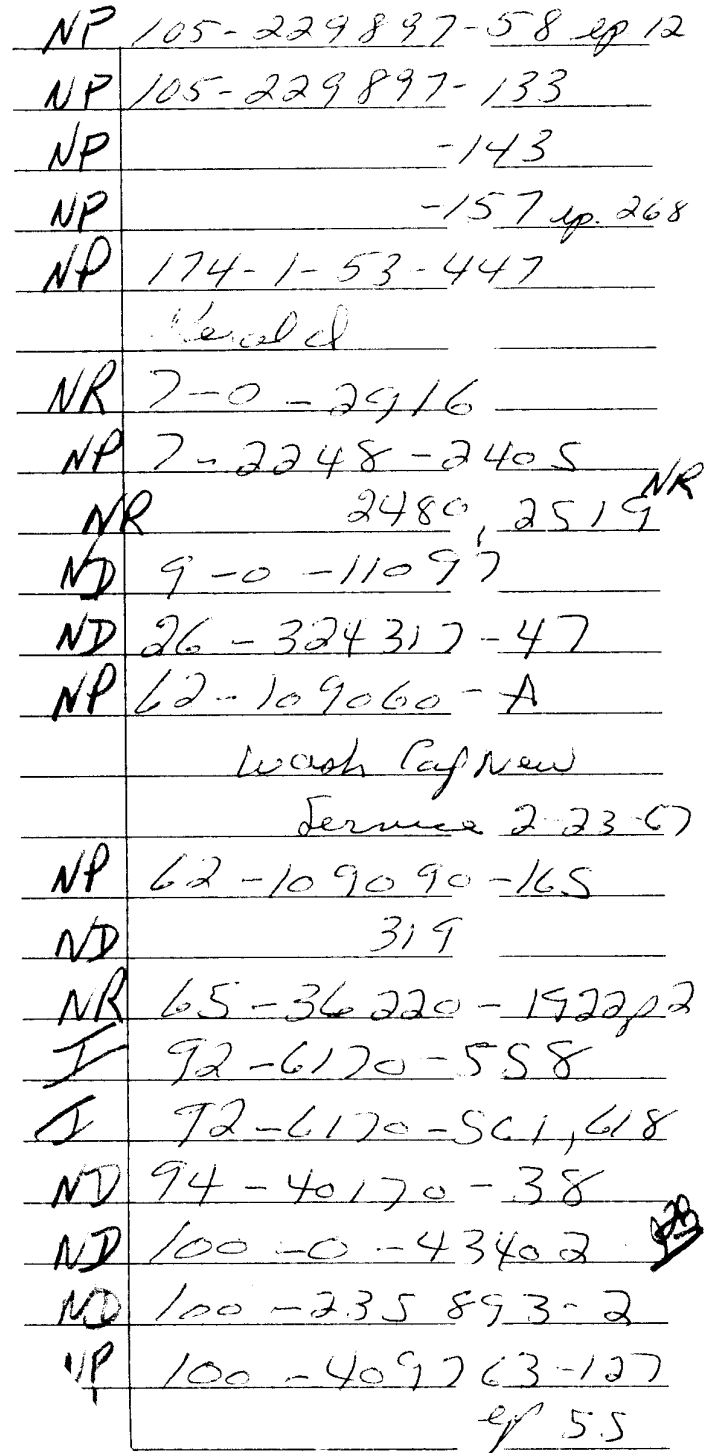 NP 105-229897-58 ep 12
NP 105-229897-133
NP -143
NP -157 ep. 268
NP 174-1-53-447
Herald
NR 7-0-2916
NP 7-2248-2405
NR 2480, 2519 NR
ND 9-0-11097
ND 26-324317-47
NP 62-109060-A
Wash Cap New
Service 2-23-67
NP 62-109090-165
ND 319
NR 65-36220-1922p2
I 92-6170-558
I 92-6170-561, 618
ND 94-40170-38
ND 100-0-43402
ND 100-235893-2
NP 100-409763-127
ep 55